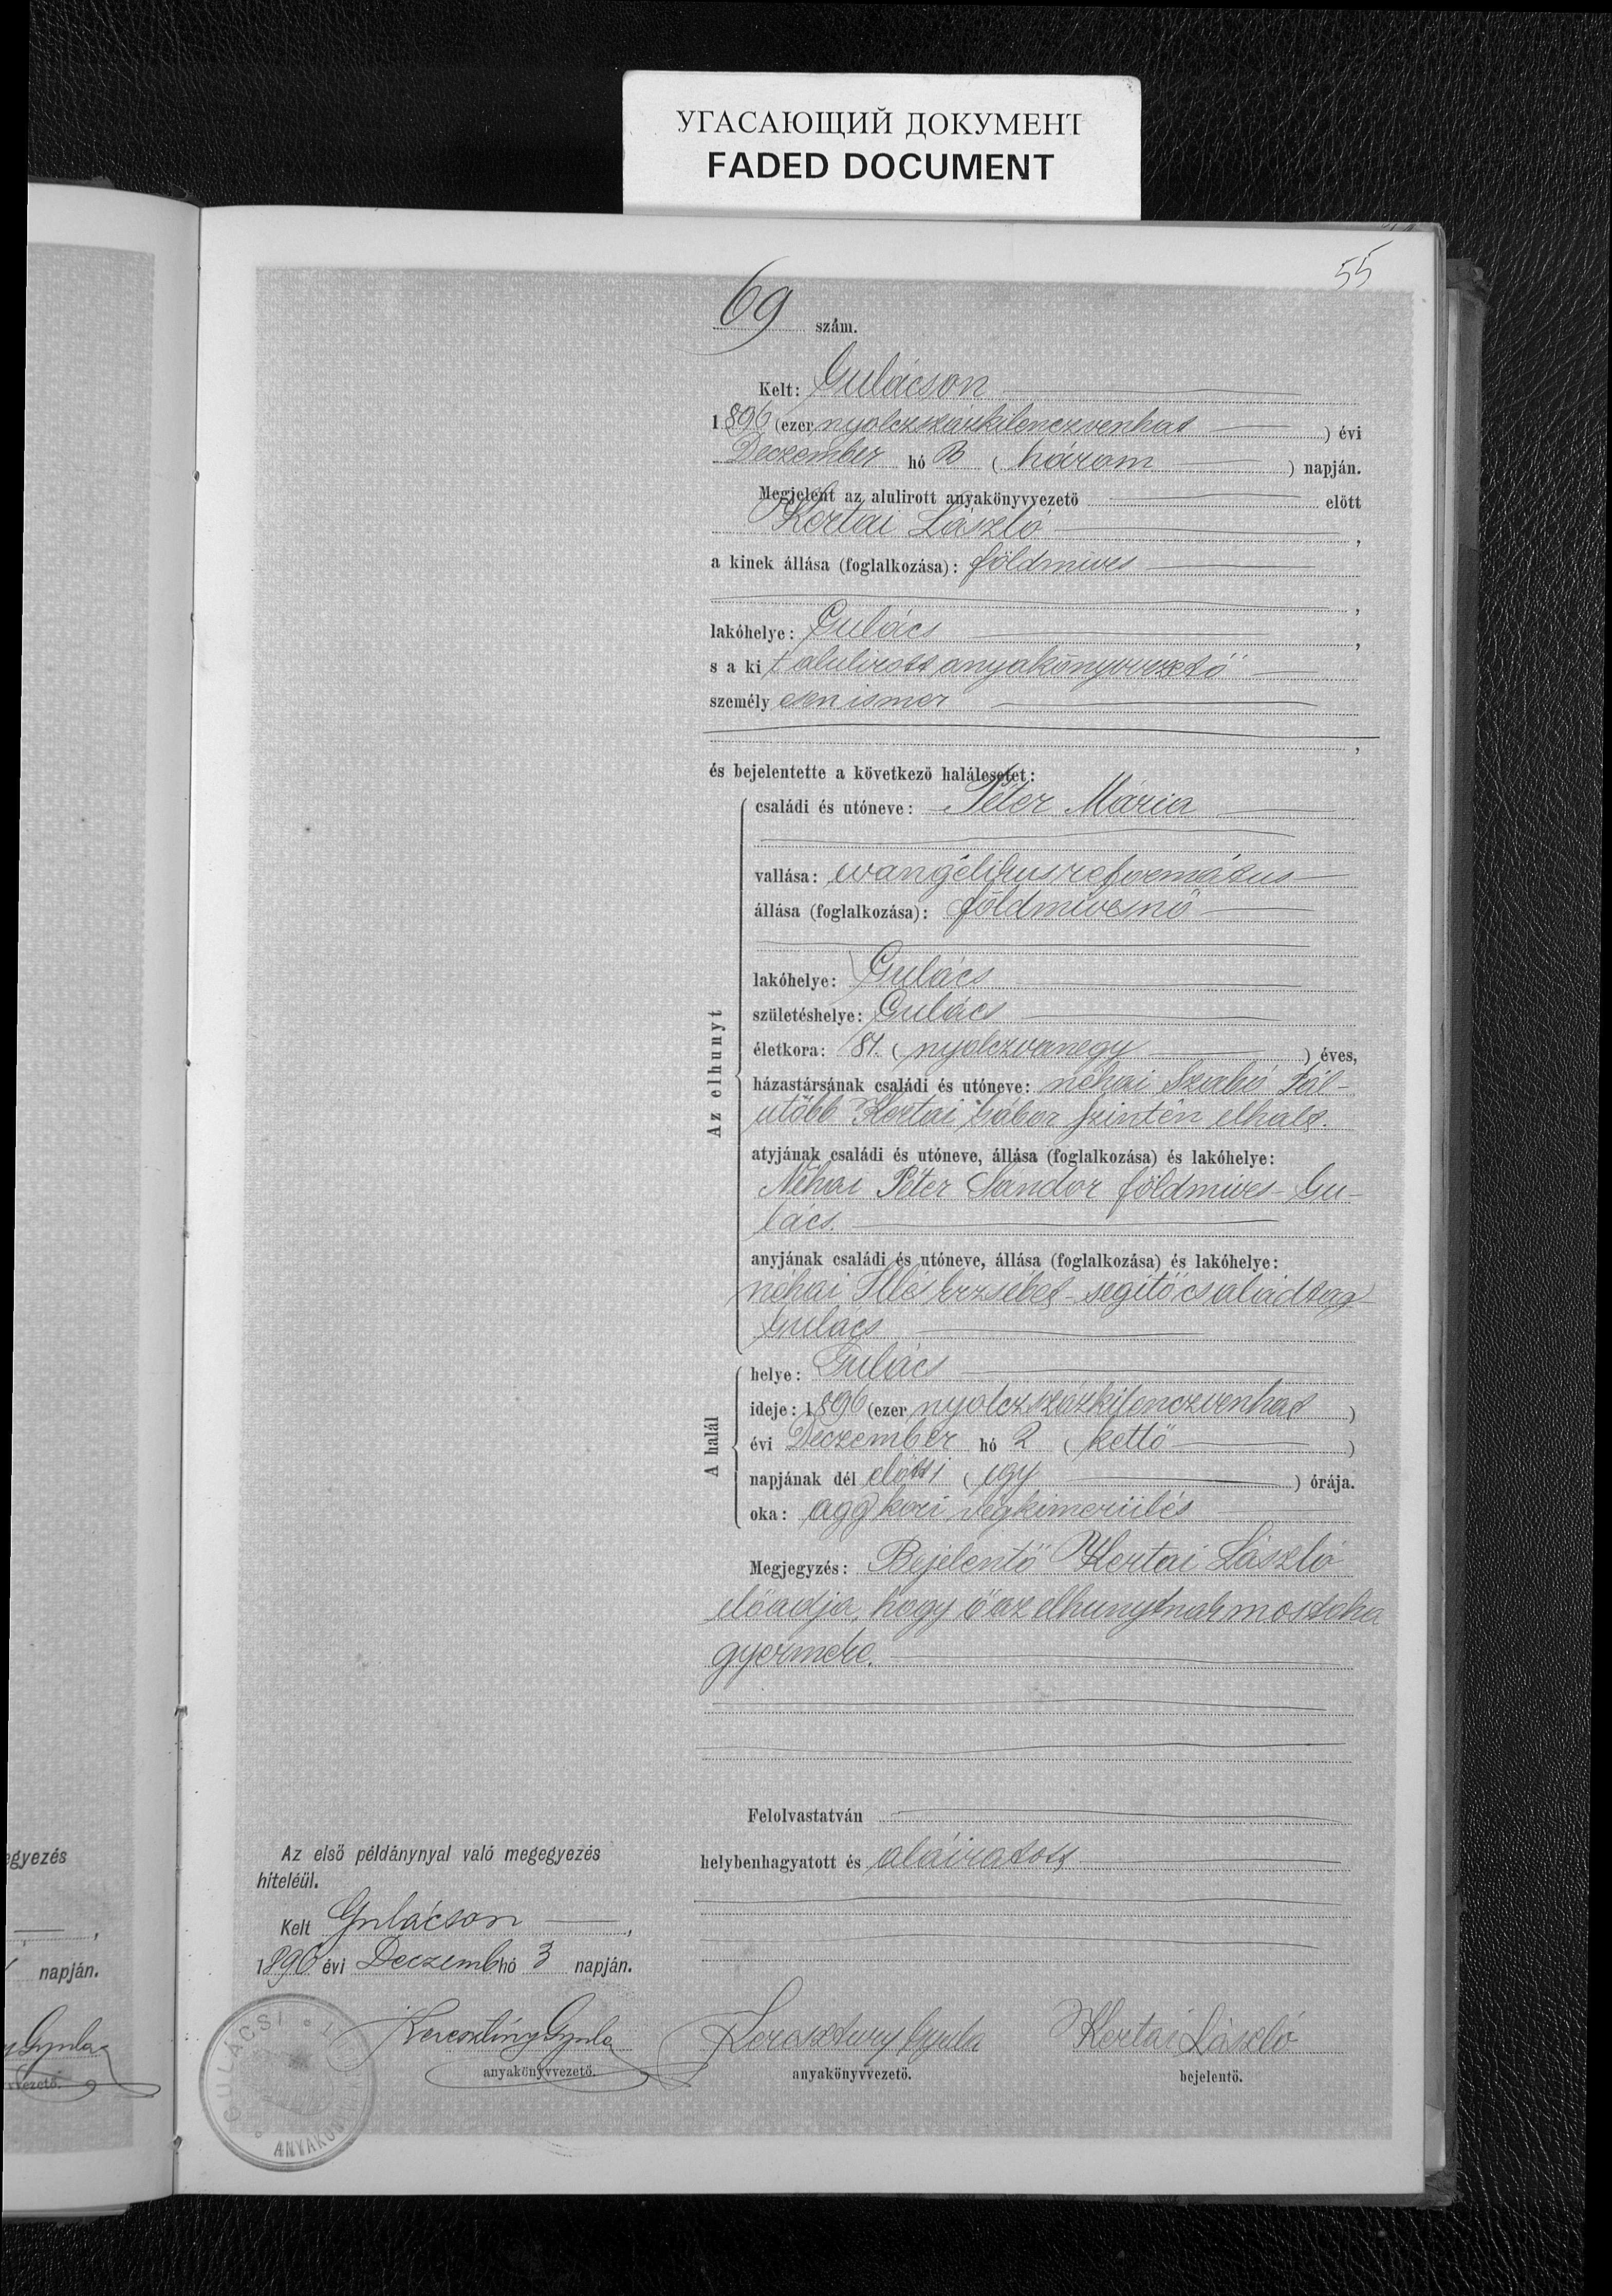 УГАСАЮЩИЙ ДОКУМЕНТ
FADED DOCUMENT
55
69 szám.
Kelt: Gulácson
1896 (ezer nyolczszázkilenczvenhat ) évi
Deczember hó 3 ( három ) napján.
Megjelent az alulirott anyakönyvvezető előtt
Kertai László ,
a kinek állása (foglalkozása): földmives
,
lakóhelye: Gulács ,
s a kit alulirott anyakönyvvezető
személyesen ismer
,
és bejelentette a következő halálesetet:
Az elhunyt
családi és utóneve: Péter Mária
vallása: evangélikus református
állása (foglalkozása): földmivesnő
lakóhelye: Gulács
születéshelye: Gulács
életkora: 81. ( nyolczvanegy ) éves,
házastársának családi és utóneve: néhai Szabó Pál -
utóbb Kertai Gábor szintén elhalt.
atyjának családi és utóneve, állása (foglalkozása) és lakóhelye:
Néhai Péter Sándor földmives - Gu-
lács.
anyjának családi és utóneve, állása (foglalkozása) és lakóhelye:
néhai Illés Erzsébet - segitő családtag -
Gulács
A halál
helye: Gulács
ideje: 1896 (ezer nyolczszázkilenczvenhat )
évi Deczember hó 2 ( kettő )
napjának dél előtti ( egy ) órája.
oka: aggkori végkimerülés
Megjegyzés: Bejelentő Kertai László
előadja, hogy ő az elhunytnak mostoha
gyermeke.
Felolvastatván
helybenhagyatott és aláiratott
Az első példánynyal való megegyezés
hiteléül.
Kelt Gulácson ,
1896 évi Deczemb hó 3 napján.
Keresztúry Gyula
anyakönyvvezető.
Keresztury Gyula
anyakönyvvezető.
Kertai László
bejelentő.
GULÁCSI
ANYAKÖNYV
egyezés
,
napján.
Gyula
vezető.